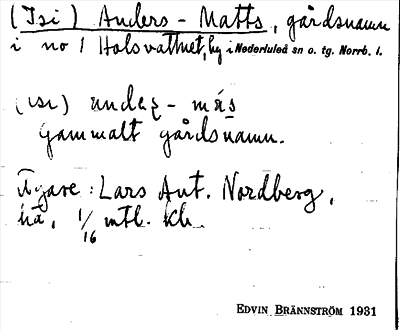 (Isi) Anders-Matts, gårdsnamn
i no 1 Holsvattnet, by i Nederluleå sn o. tg. Norrb. l.
Gammalt gårdsnamn.
Ägare: Lars Ant. Nordberg,
1/16 mtl. kh.
EDVIN BRÄNNSTRÖM 1931